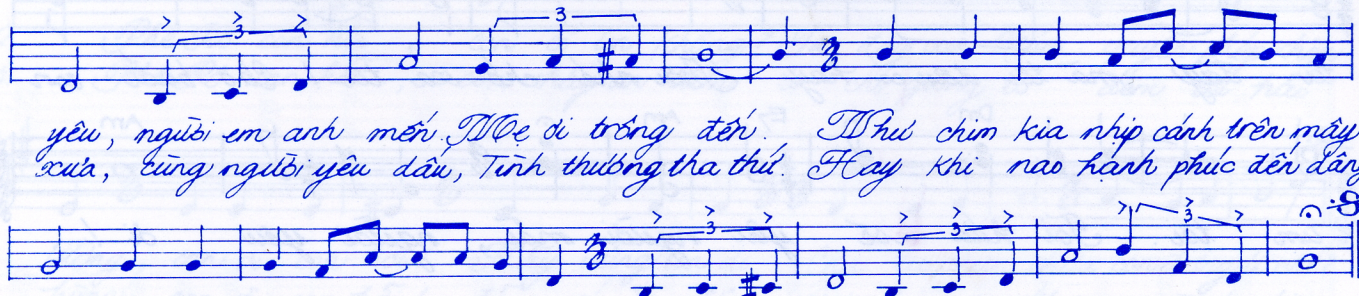 3 3
yêu, người em anh mến. Mẹ ơi trông đến. Như chim kia nhịp cánh trên mây
xưa, cùng người yêu dấu, Tình thương tha thứ. Hay khi nao hạnh phúc đến dâng
3 3 3